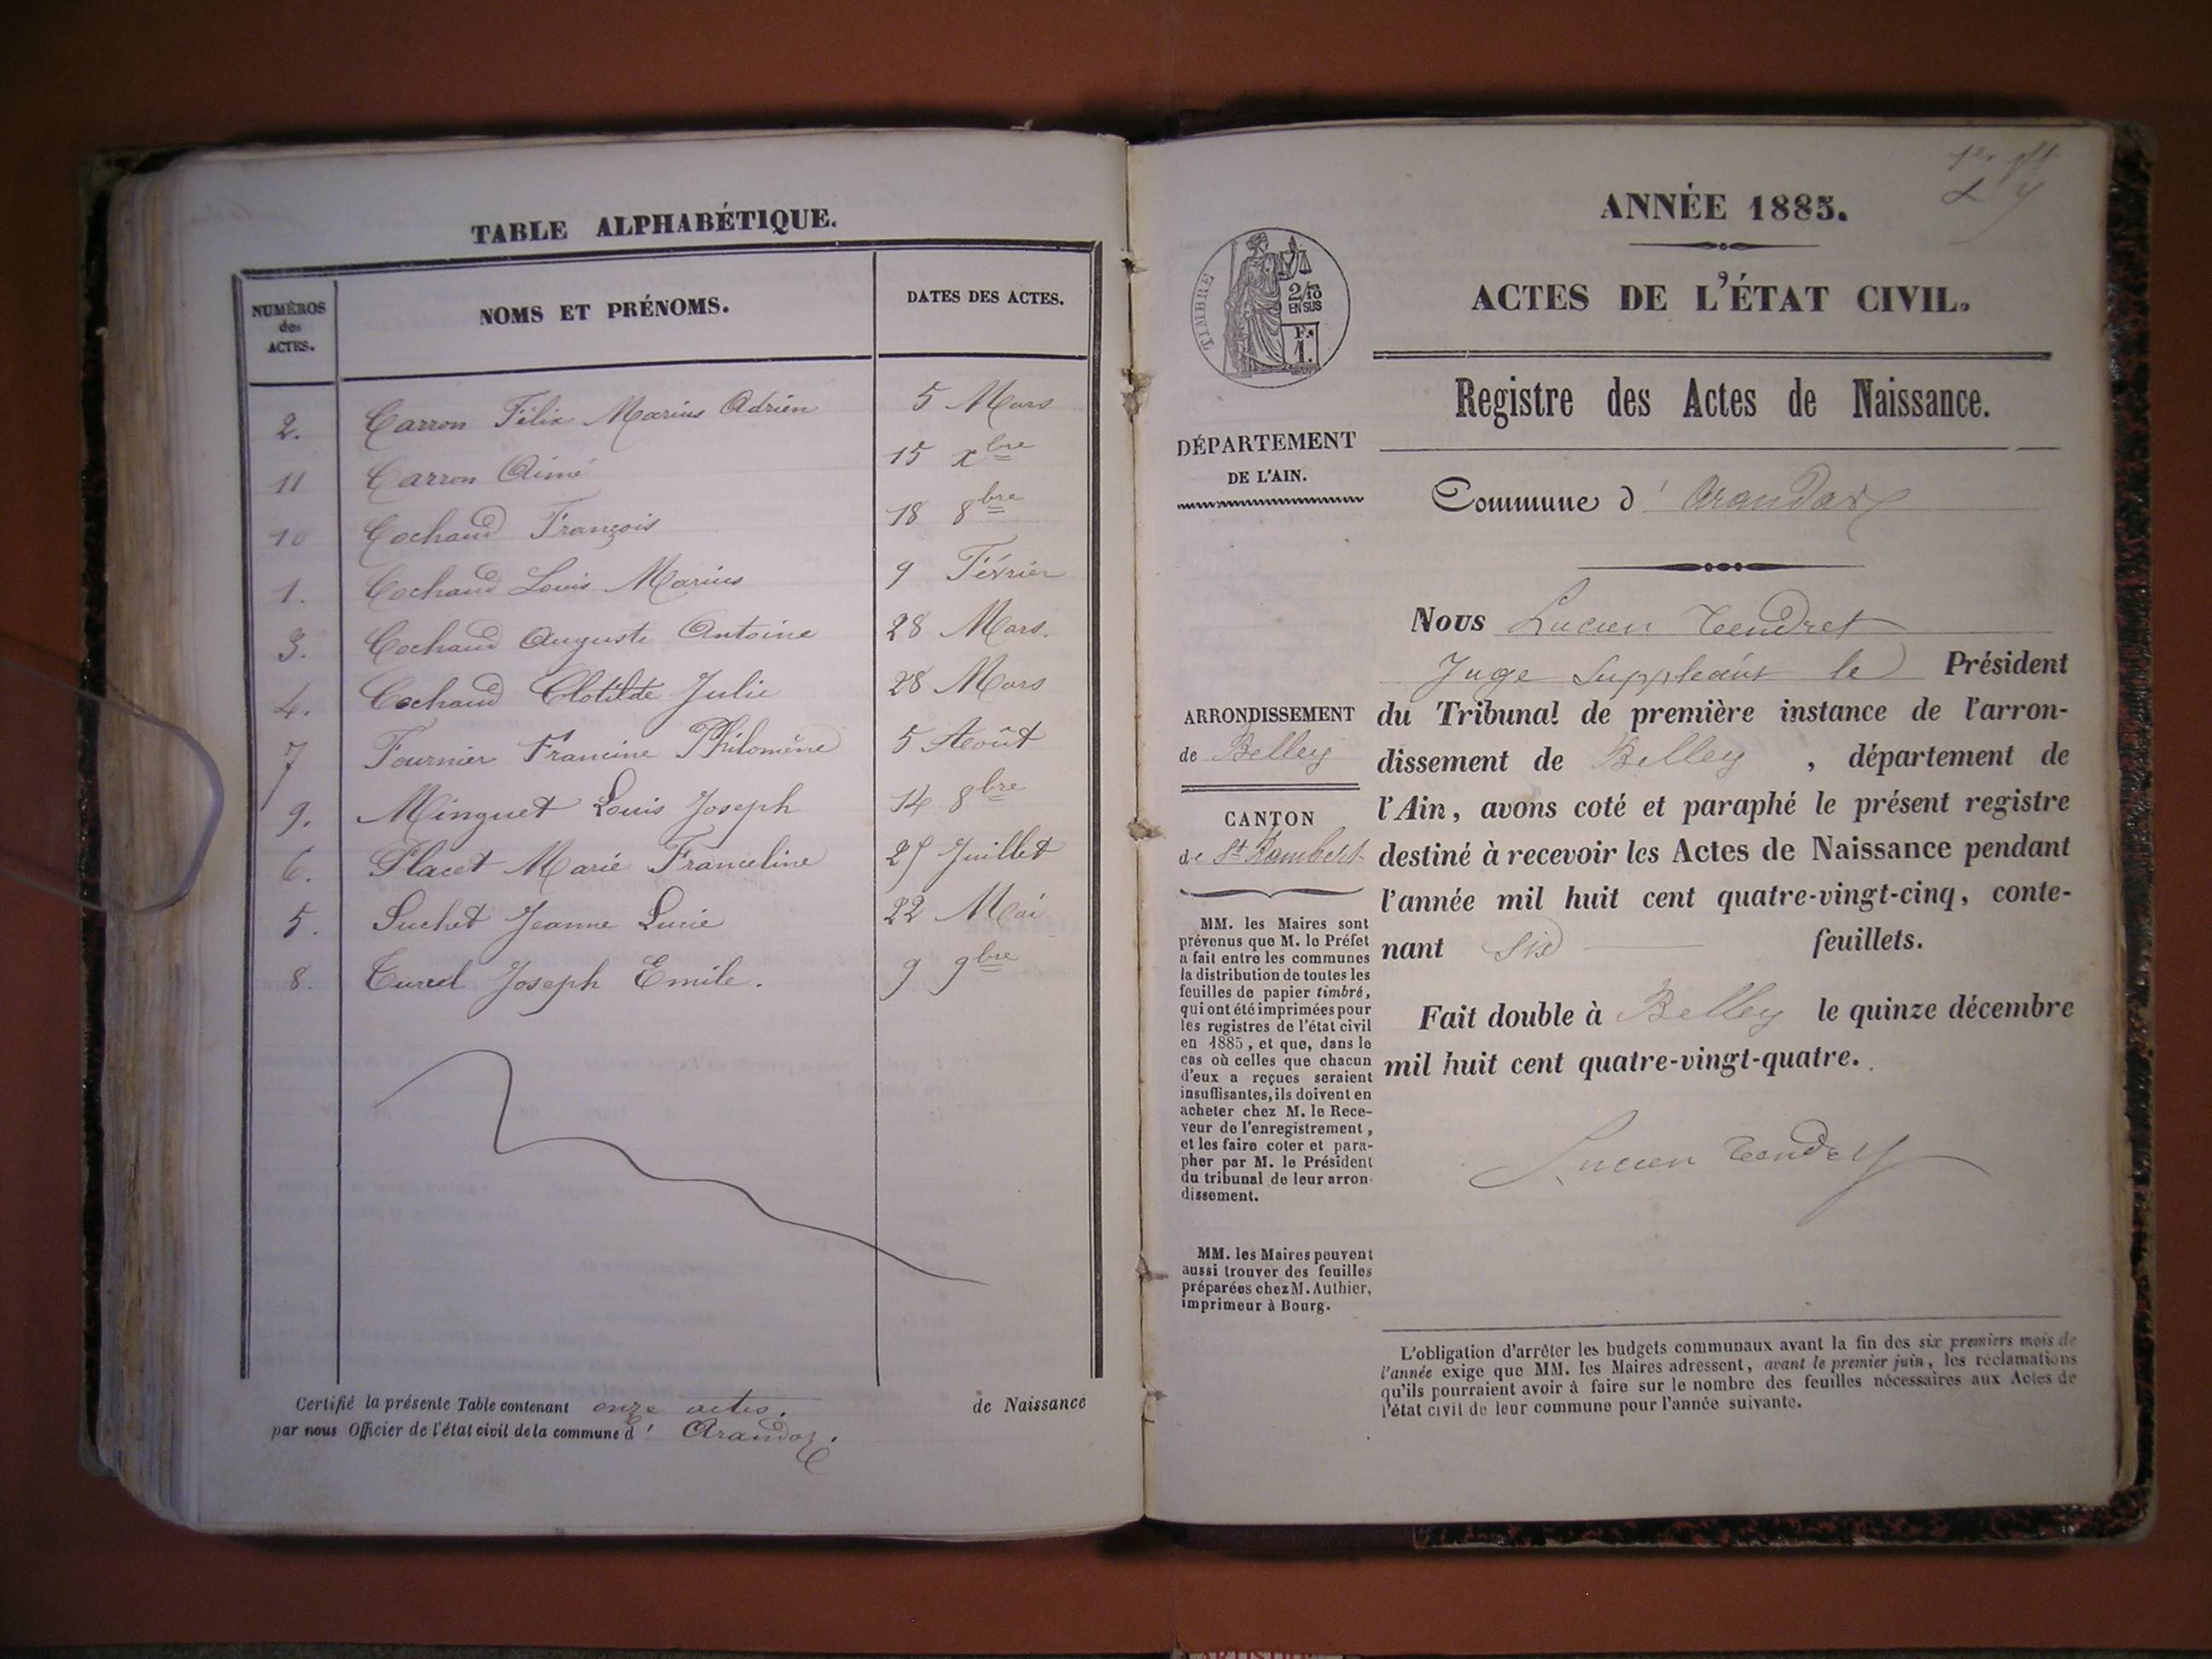 TABLE ALPHABÉTIQUE.
NUMÉROS des ACTES. NOMS ET PRÉNOMS. DATES DES ACTES.
2. Carron Félix Marius Adrien 5 Mars
11 Carron Aimé 15 xbre
10 Cochaud François 18 8bre
1. Cochaud Louis Marius 9 Février
3. Cochaud Auguste Antoine 28 Mars.
4. Cochaud Clotilde Julie 28 Mars
7 Fournier Francine Philomène 5 Août
9. Minguet Louis Joseph 14 8bre
6. Placet Marie Franceline 25 Juillet
5. Suchet Jeanne Lucie 22 Mai
8. Joseph Emile. 9 9bre
Certifié la présente Table contenant onze actes. de Naissance
par nous Officier de l'état civil de la commune d' Arandas.
ANNÉE 1885.
ACTES DE L'ÉTAT CIVIL.
TIMBRE
2/10
EN SUS
F.
1.
Registre des Actes de Naissance.
DÉPARTEMENT
DE L'AIN.
Commune d' Arandas
Nous Lucien Tendret
Juge Suppléant le Président
du Tribunal de première instance de l'arron-
dissement de Belley, département de
l'Ain, avons coté et paraphé le présent registre
destiné à recevoir les Actes de Naissance pendant
l'année mil huit cent quatre-vingt-cinq, conte-
nant six feuillets.
Fait double à Belley le quinze décembre
mil huit cent quatre-vingt-quatre.
Lucien Tendret
ARRONDISSEMENT
de Belley
CANTON
de St Rambert
MM. les Maires sont
prévenus que M. le Préfet
a fait entre les communes
la distribution de toutes les
feuilles de papier timbré,
qui ont été imprimées pour
les registres de l'état civil
en 1885, et que, dans le
cas où celles que chacun
d'eux a reçues seraient
insuffisantes, ils doivent en
acheter chez M. le Rece-
veur de l'enregistrement,
et les faire coter et para-
pher par M. le Président
du tribunal de leur arron-
dissement.
MM. les Maires peuvent
aussi trouver des feuilles
préparées chez M. Authier,
imprimeur à Bourg.
L'obligation d'arrêter les budgets communaux avant la fin des six premiers mois de
l'année exige que MM. les Maires adressent, avant le premier juin, les réclamations
qu'ils pourraient avoir à faire sur le nombre des feuilles nécessaires aux Actes de
l'état civil de leur commune pour l'année suivante.